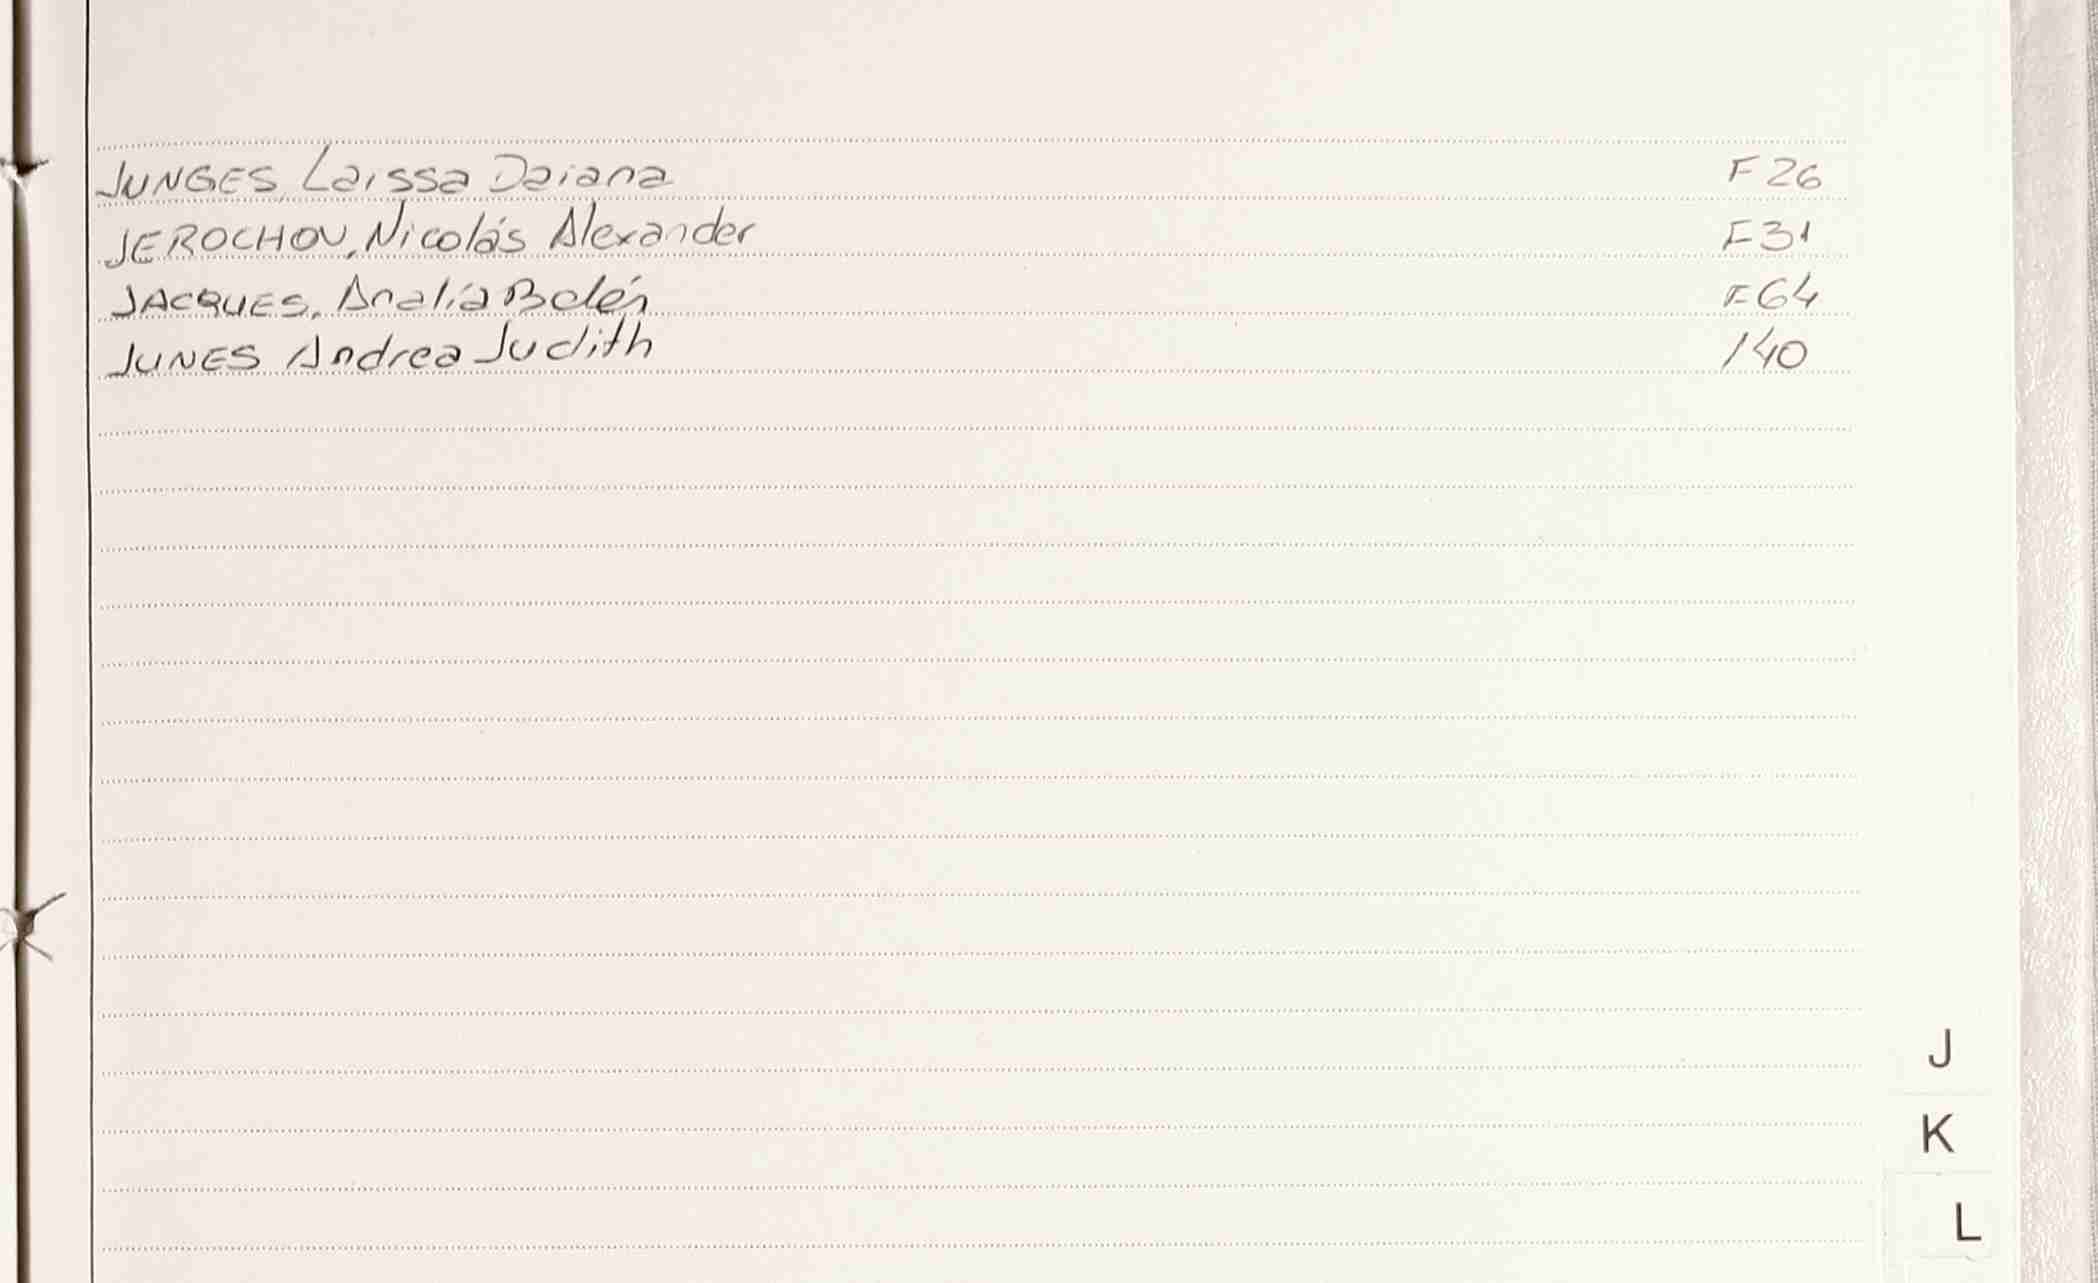 JUNGES, Laissa Daiana F 26
JEROCHOV, Nicolás Alexander F31
JACQUES, Analía Belén F64
JUNES Andrea Judith 140
J
K
L